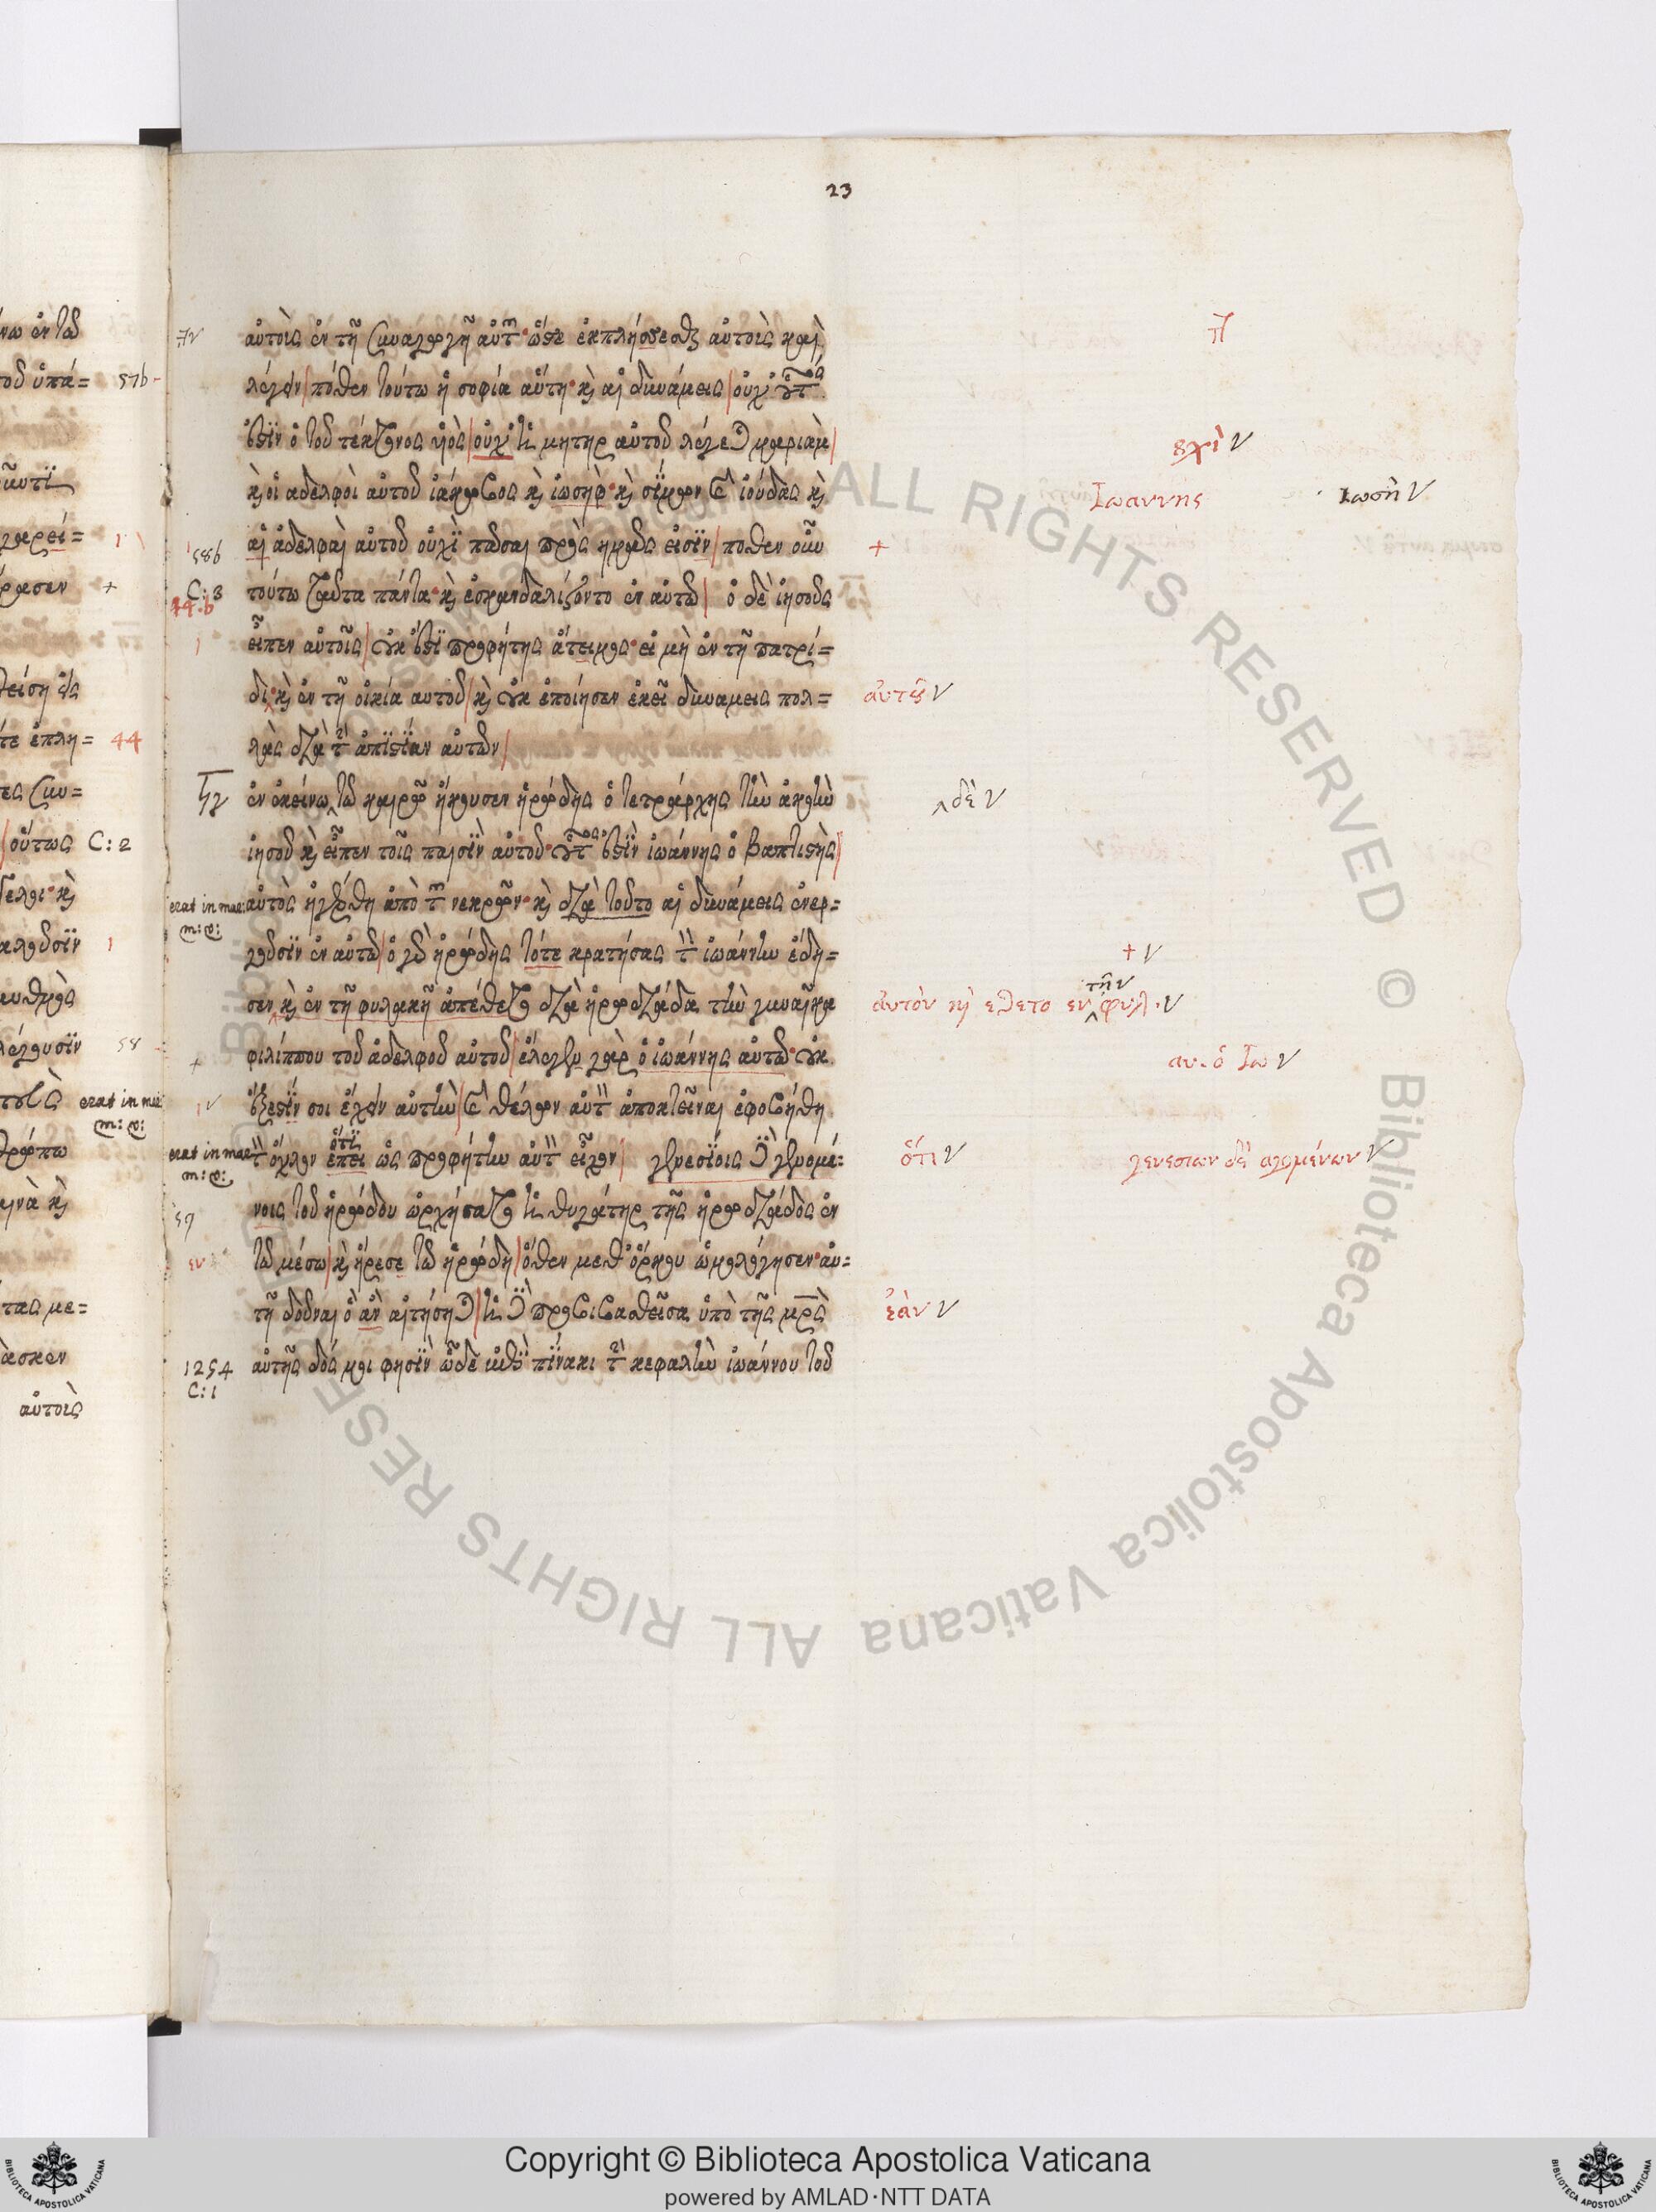 23
αὐτοὺς ἐν τῇ συναγωγῇ αὐτῶν· ὥστε ἐκπλήσσεσθαι αὐτοὺς καὶ
λέγειν πόθεν τούτω ἡ σοφία αὕτη· καὶ αἱ δυνάμεις οὐχ οὗτός
ἐστὶν ὁ τοῦ τέκτονος υἱὸς οὐχ ἡ μητηρ αὐτοῦ λέγεται μαριὰμ
καὶ οἱ αδελφοὶ αὐτοῦ ἰάκωβος καὶ ἰωσὴφ· καὶ σίμων καὶ ἰούδας καὶ
αἱ ἀδελφαὶ αὐτοῦ οὐχὶ πᾶσαι πρὸς ημᾶς εἰσὶν ποθεν οὖν
τούτω ταῦτα πάντα· καὶ ἐσκανδαλίζοντο ἐν αὐτῶ ὁ δὲ ἰησοῦς
εἶπεν αὐτοῖς οὐκ ἔστι προφήτης ἄτειμος· εἰ μὴ ἐν τῇ πατρί=
δι· καὶ ἐν τῇ οἰκία αυτοῦ καὶ οὐκ ἐποίησεν ἐκεῖ δυναμεις πολ=
λὰς διὰ τὴν ἀπιστίαν αὐτῶν
ἐν ἐκείνω τῶ καιρῶ ἤκουσεν ἡρώδης ὁ τετράρχης τὴν ἀκοὴν
ἰησοῦ καὶ εἶπεν τοῖς παισὶν αὐτοῦ· οὗτός ἐστὶν ἰωάννης ὁ βαπτιστὴς
αὐτὸς ἠγέρθη ἀπὸ τῶν νεκρῶν· καὶ διὰ τοῦτο αἱ δυνάμεις ἐνερ=
γοῦσιν ἐν αὐτῶ ὁ γὰρ ἡρώδης τότε κρατήσας τὸν ἰωάννην ἔδη=
σεν καὶ ἐν τῇ φυλακῇ ἀπέθετο διὰ ἡρωδιάδα τὴν γυναῖκα
φιλίππου τοῦ ἀδελφοῦ αὐτοῦ ἔλεγεν γὰρ ὁ ἰωάννης αὐτῶ· οὐκ
ἔξεστίν σοι ἔχειν αὐτὴν καὶ θέλων αὐτὸν ἀποκτεῖναι ἐφοβήθη
ὅτι
τὸν ὄχλον ἐπεὶ ὡς προφήτην αὐτὸν εἶχον γενεσίοις δὲ γενομέ=
νοις τοῦ ἡρώδου ὠρχήσατο ἡ θυγάτηρ τῆς ἡρωδιάδος ἐν
τῶ μέσω καὶ ἤρεσε τῶ ἡρώδη ὅθεν μεθ ὅρκου ὡμολόγησεν· αὐ=
τῇ δοῦναι ὃ ἂν αἰτήσηται ἡ δὲ προβιβασθεῖσα ὑπὸ τῆς μρὸς
αὐτῆς δός μοι φησὶν ὧδε ἐπὶ πίνακι τὴν κεφαλὴν ἰωάννου τοῦ
57b
58b
C: 3
44.b
erat in mar:
m: v:
erat in mar:
m: v:
59
1254
C: 1
ȣχὶ
Ιωαννης
Ιωσὴ
αὐτȣ
δὲ
αὐτὸν κὶ εθετο εν τῆ φυλ.
αυ. ὁ Ιω
ὅτι
γενεσιων δὲ αγομένων
ἐὰν
44
C: 2
οὕτως
58
erat in mar:
m: v:
αὐτοὺς
Copyright © Biblioteca Apostolica Vaticana
powered by AMLAD·NTT DATA
ALL RIGHTS RESERVED © Biblioteca Apostolica Vaticana